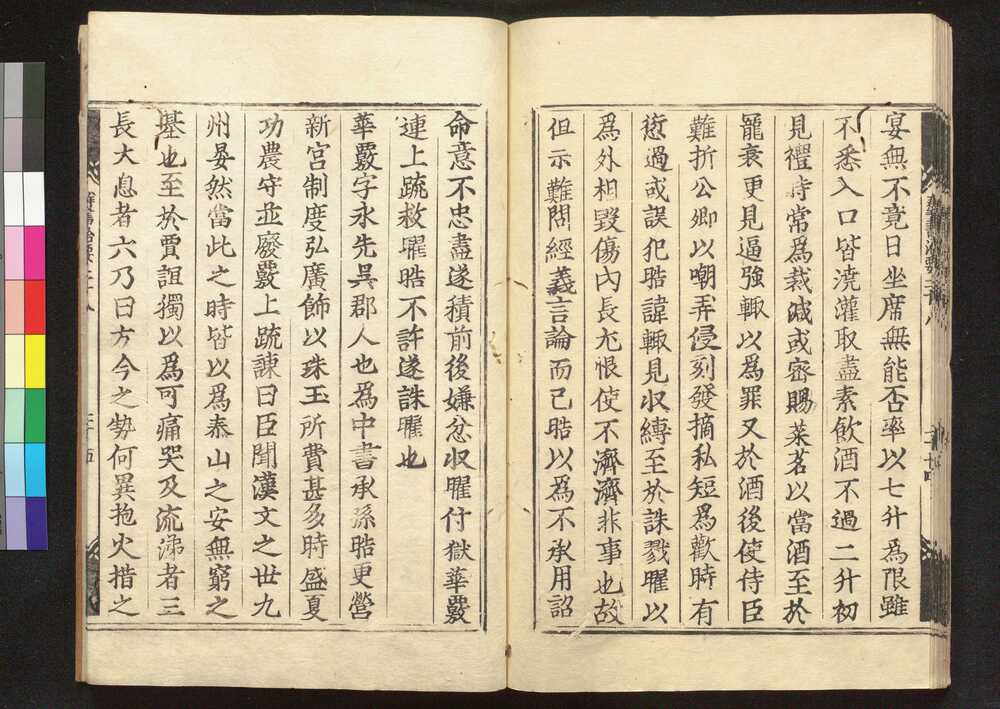 宴無不竟日坐席無能否率以七升爲限雖
不悉入口皆澆灌取盡素飲酒不過二升初
見禮時常爲裁減或密賜茶茗以當酒至於
寵衰更見逼強輒以爲罪又於酒後使侍臣
難折公卿以嘲弄侵刻發摘私短爲歡時有
愆過或誤犯晧諱輒見収縛至於誅戮曜以
爲外相毀傷內長尤恨使不濟濟非事也故
但示難問經義言論而已晧以爲不承用詔
命意不忠盡遂積前後嫌忿収曜付獄華覈
連上疏救曜晧不許遂誅曜也
華覈字永先吳郡人也爲中書承孫晧更營
新宮制度弘廣飾以珠玉所費甚多時盛夏
功農守並廢覈上疏諌曰臣聞漢文之世九
州晏然當此之時皆以爲泰山之安無窮之
基也至於賈誼獨以爲可痛哭及流涕者三
長大息者六乃曰方今之勢何異抱火措之